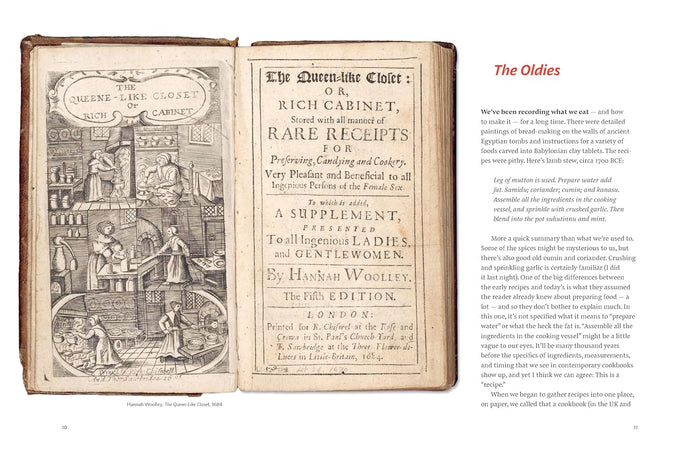 THE
QUEENE-LIKE CLOSET
Or
RICH CABINET
The Queen-like Closet:
OR,
RICH CABINET,
Stored with all manner of
RARE RECEIPTS
FOR
Preserving, Candying and Cookery.
Very Pleasant and Beneficial to all
Ingenious Persons of the Female Sex.
To which is added,
A SUPPLEMENT,
PRESENTED
To all Ingenious LADIES,
and GENTLEWOMEN.
By HANNAH WOOLLEY.
The Fifth EDITION.
LONDON:
Printed for R. Chiswel at the Rose and
Crown in St. Paul's Church-Yard, and
T. Sawbridge at the Three Flower-de-
Luces in Little-Britain, 1684.
Hannah Woolley, The Queen-Like Closet, 1684
10
The Oldies
We've been recording what we eat — and how
to make it — for a long time. There were detailed
paintings of bread-making on the walls of ancient
Egyptian tombs and instructions for a variety of
foods carved into Babylonian clay tablets. The reci-
pes were pithy. Here's lamb stew, circa 1700 BCE:
Leg of mutton is used. Prepare water add
fat. Samidu; coriander; cumin; and kanasu.
Assemble all the ingredients in the cooking
vessel, and sprinkle with crushed garlic. Then
blend into the pot suhutinnu and mint.
More a quick summary than what we're used to.
Some of the spices might be mysterious to us, but
there's also good old cumin and coriander. Crushing
and sprinkling garlic is certainly familiar (I did
it last night). One of the big differences between
the early recipes and today's is what they assumed
the reader already knew about preparing food — a
lot — and so they don't bother to explain much. In
this one, it's not specified what it means to "prepare
water" or what the heck the fat is. "Assemble all the
ingredients in the cooking vessel" might be a little
vague to our eyes. It'll be many thousand years
before the specifics of ingredients, measurements,
and timing that we see in contemporary cookbooks
show up, and yet I think we can agree: This is a
"recipe."
When we began to gather recipes into one place,
on paper, we called that a cookbook (in the UK and
11